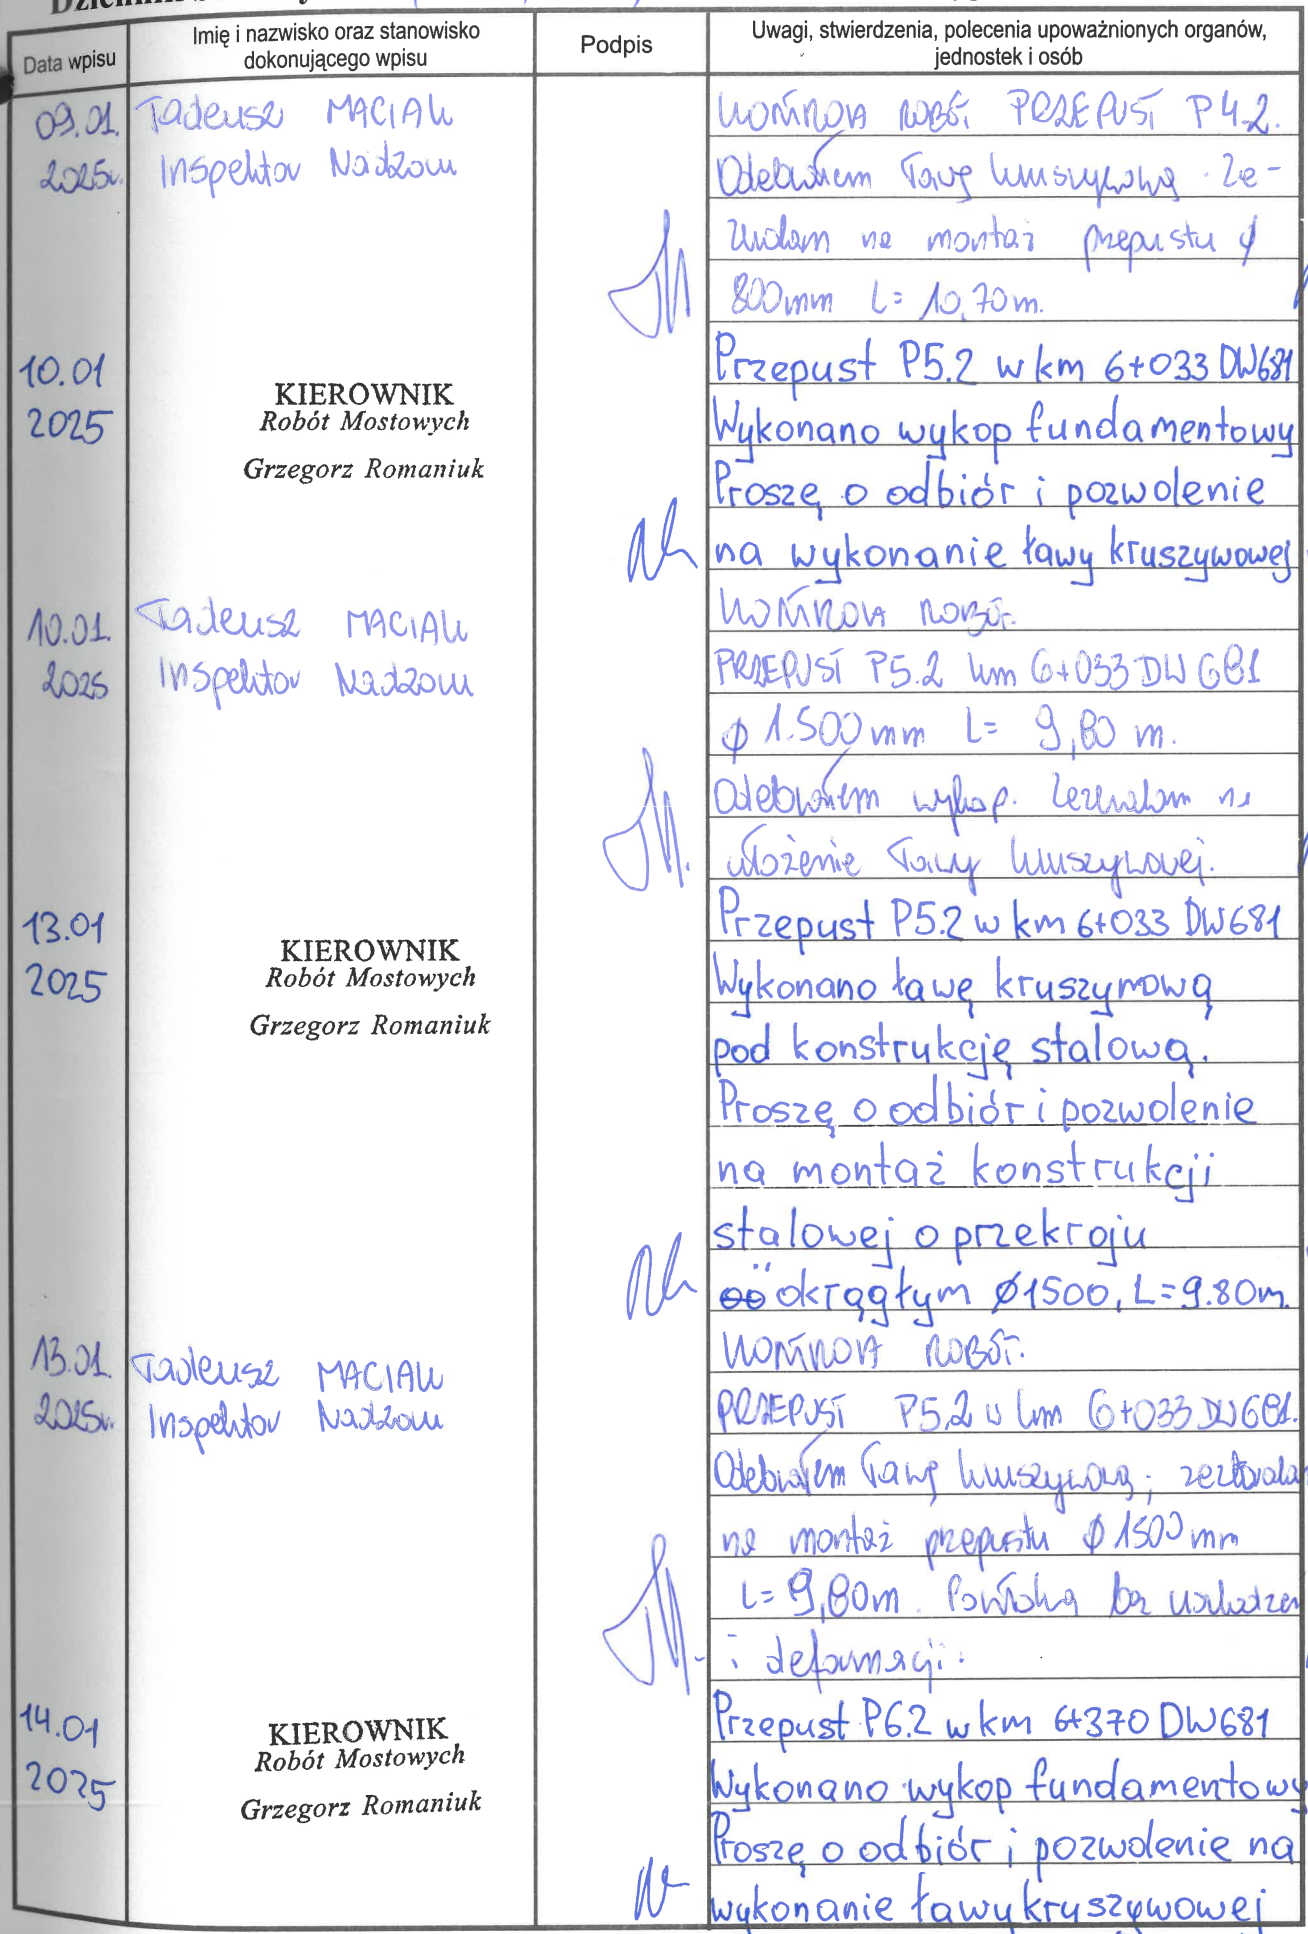 Data wpisu
Imię i nazwisko oraz stanowisko
dokonującego wpisu
Podpis
Uwagi, stwierdzenia, polecenia upoważnionych organów,
jednostek i osób
09.01.
2025r.
Tadeusz MACIAK
Inspektor Nadzoru
KONTROLA ROBÓT PRZEPUST P4.2.
Odebrałem ławę kruszywową. Ze-
zwalam na montaż przepustu ϕ
800mm L= 10,70m.
10.01
2025
KIEROWNIK
Robót Mostowych
Grzegorz Romaniuk
Przepust P5.2 w km 6+033 DW681
Wykonano wykop fundamentowy
Proszę o odbiór i pozwolenie
na wykonanie ławy kruszywowej
10.01.
2025
Tadeusz MACIAK
Inspektor Nadzoru
KONTROLA ROBÓT.
PRZEPUST P5.2 km 6+033 DW 681
ϕ 1.500 mm L= 9,80 m.
Odebrałem wykop. Zezwalam na
ułożenie ławy kruszywowej.
13.01
2025
KIEROWNIK
Robót Mostowych
Grzegorz Romaniuk
Przepust P5.2 w km 6+033 DW681
Wykonano ławę kruszynową
pod konstrukcję stalową.
Proszę o odbiór i pozwolenie
na montaż konstrukcji
stalowej o przekroju
okrągłym Ø1500, L=9.80m.
13.01.
2025r.
Tadeusz MACIAK
Inspektor Nadzoru
KONTROLA ROBÓT.
PRZEPUST P5.2 w km 6+033 DW681.
Odebrałem ławę kruszywową; zezwala
na montaż przepustu ϕ 1500 mm
L= 9,80m. Powłoka bez uszkodzeń
i deformacji.
14.01
2025
KIEROWNIK
Robót Mostowych
Grzegorz Romaniuk
Przepust P6.2 w km 6+370 DW681
Wykonano wykop fundamentowy
Proszę o odbiór i pozwolenie na
wykonanie ławy kruszywowej